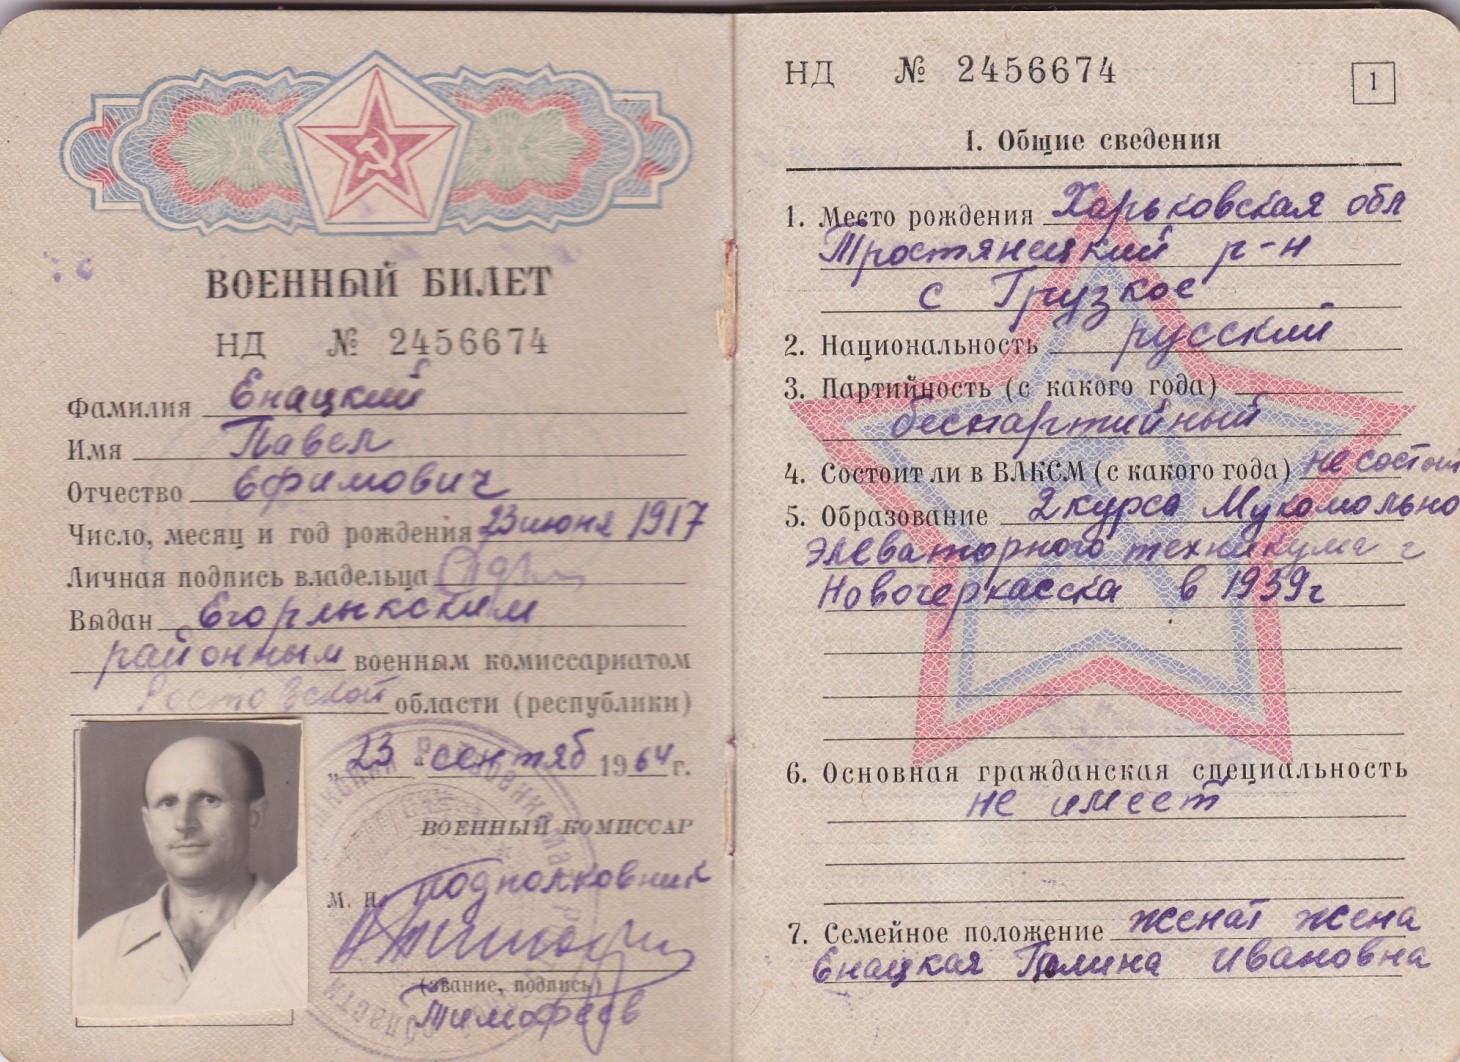 ВОЕННЫЙ БИЛЕТ
НД № 2456674
Фамилия Енацкий
Имя Павел
Отчество Ефимович
Число, месяц и год рождения 23 июня 1917
Личная подпись владельца
Выдан Егорлыкским
районным военным комиссариатом
Ростовской области (республики)
„23 сентяб 1964 г.
ВОЕННЫЙ КОМИССАР
м. п. подполковник
(звание, подпись)
Тимофеев
НД № 2456674
1
I. Общие сведения
1. Место рождения Харьковская обл
Тростянецкий р-н
с Грузкое
2. Национальность русский
3. Партийность (с какого года)
беспартийный
4. Состоит ли в ВЛКСМ (с какого года) не состоит
5. Образование 2 курса Мукомольно
элеваторного техникума г
Новочеркасска в 1939г
6. Основная гражданская специальность
не имеет
7. Семейное положение женат жена
Енацкая Галина Ивановна